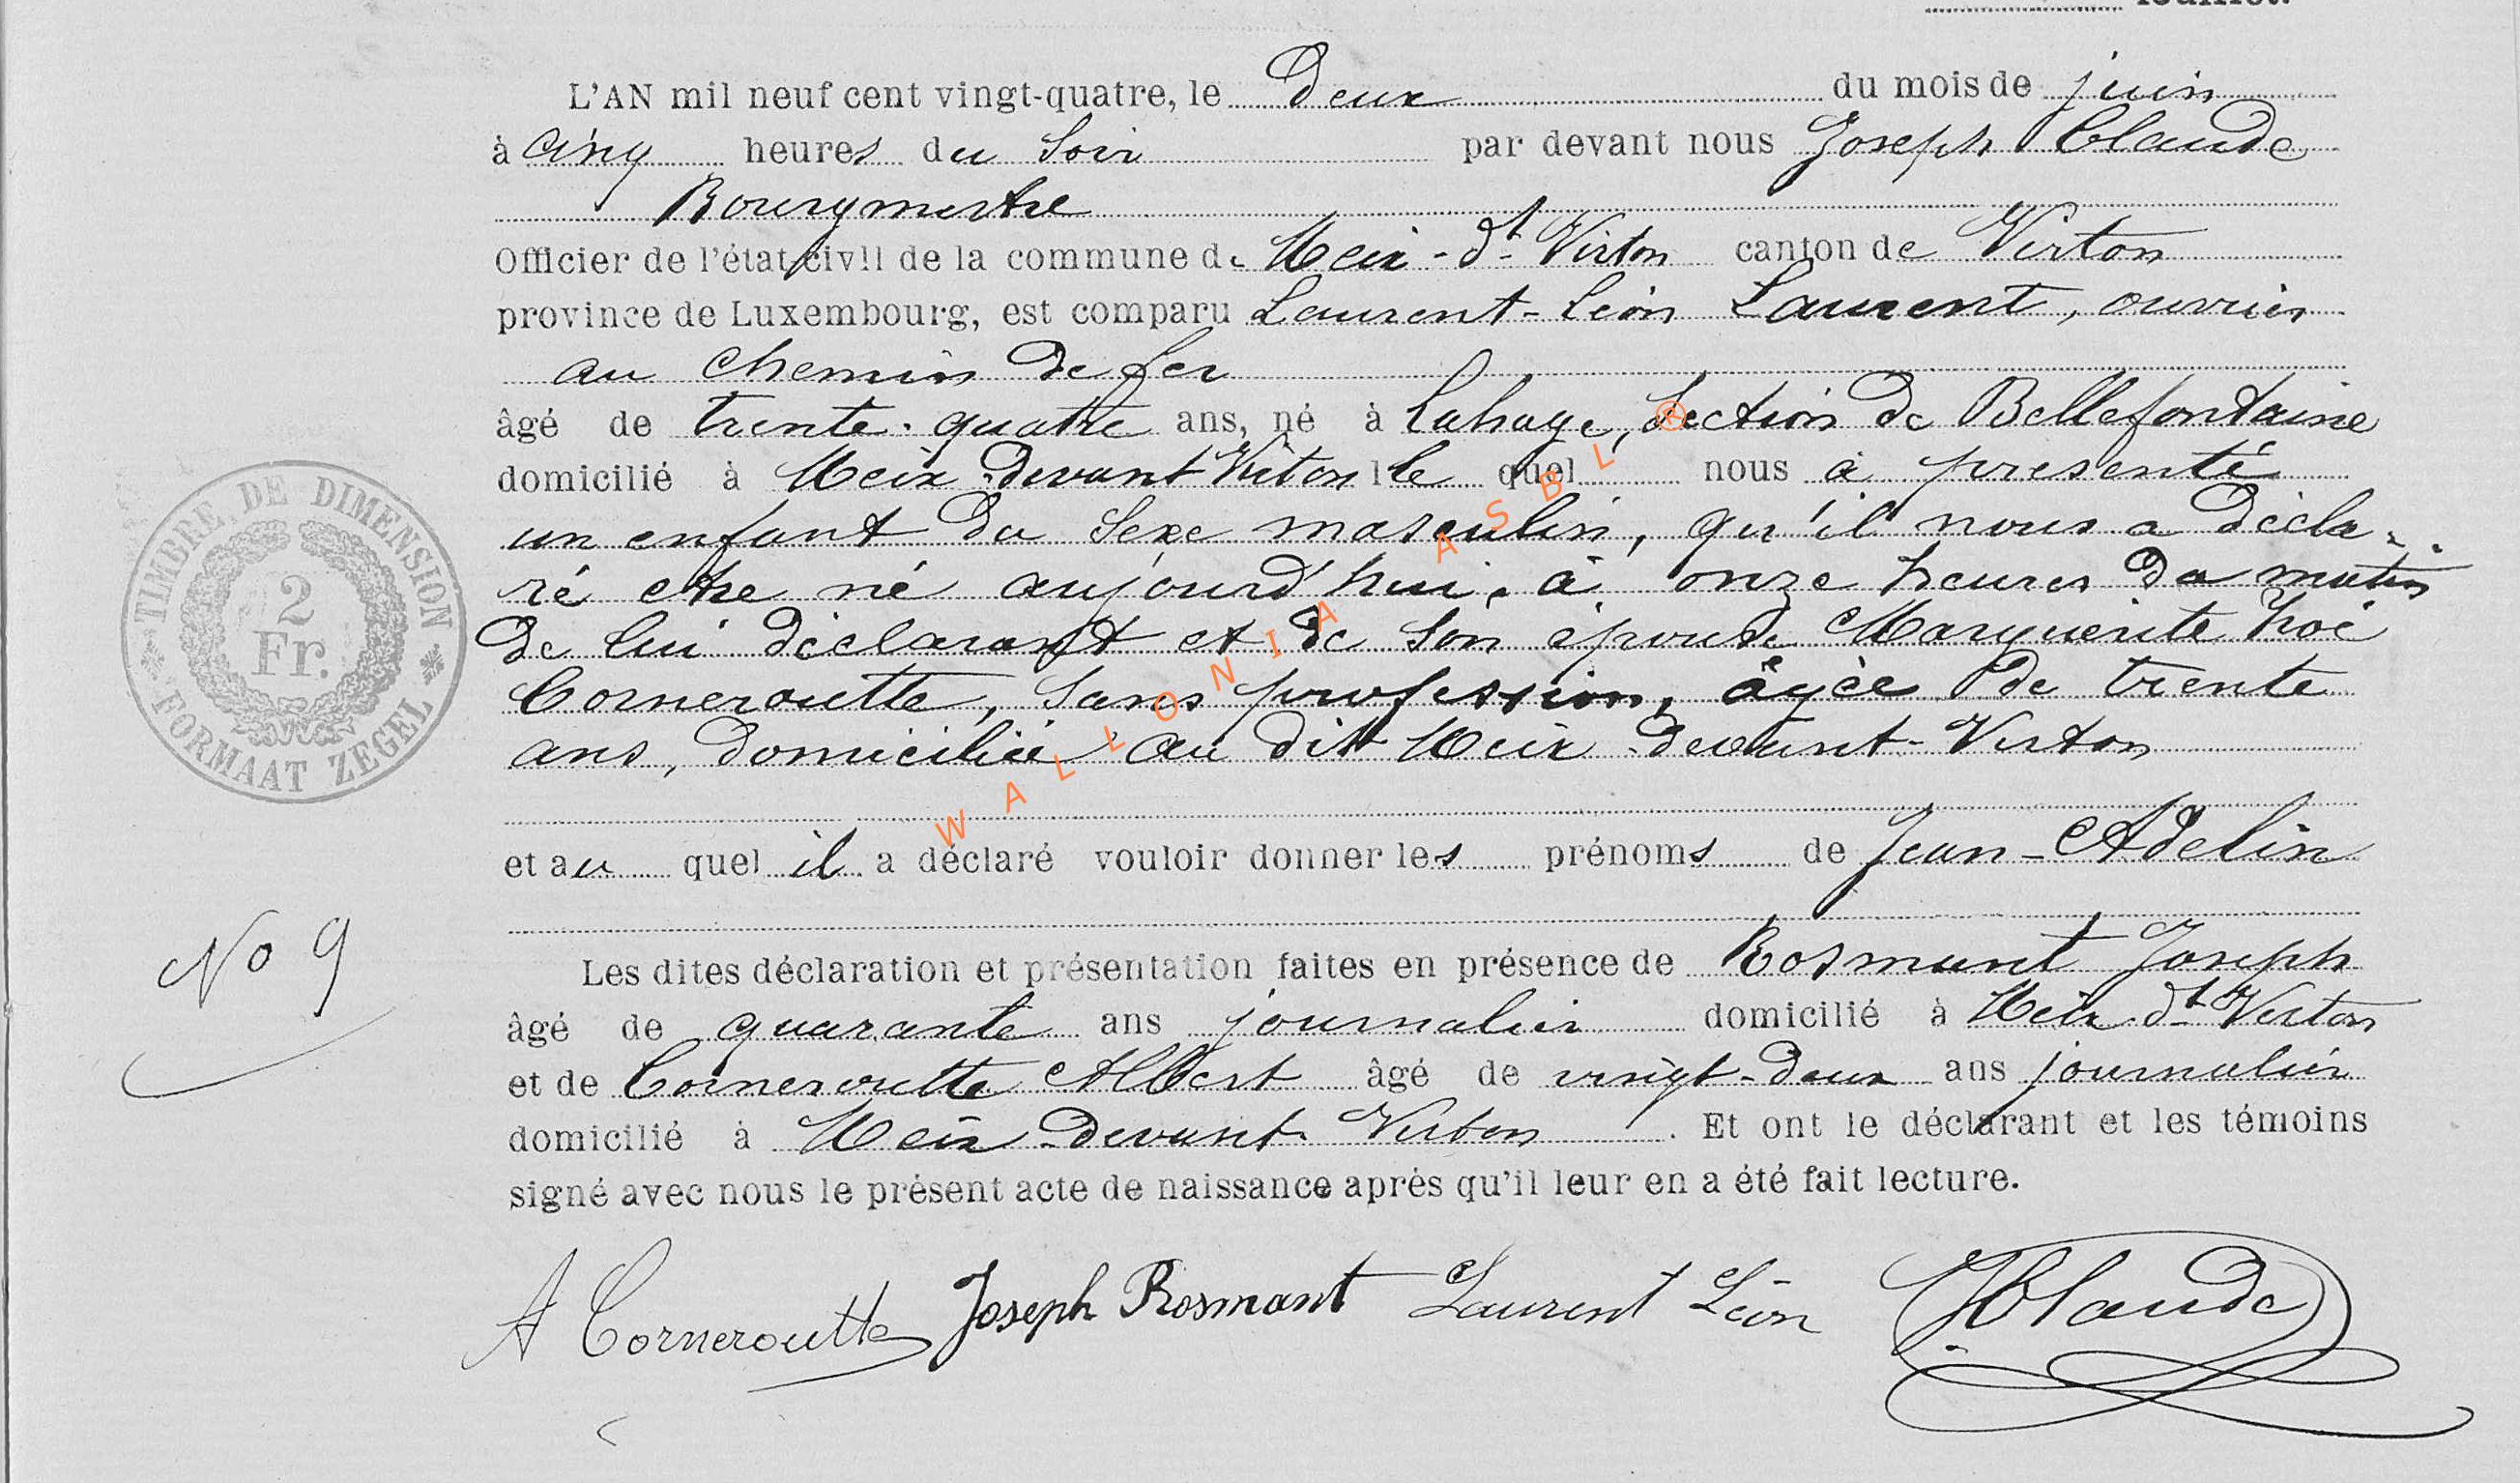 feuillet.
L'AN mil neuf cent vingt-quatre, le deux du mois de juin
à cinq heures du soir par devant nous Joseph Claude
Bourgmestre
Officier de l'état civil de la commune de Meix-dt-Virton canton de Virton
province de Luxembourg, est comparu Laurent-Léon Laurent, ouvrier
au chemin de fer
âgé de trente-quatre ans, né à Lahage, section de Bellefontaine
domicilié à Meix-devant Virton lequel nous a présenté
un enfant du sexe masculin, qu'il nous a décla-
ré etre né aujourd'hui, à onze heures du matin
de lui déclarant et de son épouse Marguerite Zoé
Corneroutte, sans profession, âgée de trente
ans, domiciliée au dit Meix-devant-Virton
et au quel il a déclaré vouloir donner les prénoms de Jean-Adelin
Les dites déclaration et présentation faites en présence de Rosmant Joseph
âgé de quarante ans journalier domicilié à Meix-dt-Virton
et de Corneroutte Albert âgé de vingt-deux ans journalier
domicilié à Meix-devant-Virton. Et ont le déclarant et les témoins
signé avec nous le présent acte de naissance après qu'il leur en a été fait lecture.
A Corneroutte Joseph Rosmant Laurent Léon J Claude
No 9
TIMBRE DE DIMENSION
2
Fr.
FORMAAT ZEGEL
WALLONIA ASBL ®